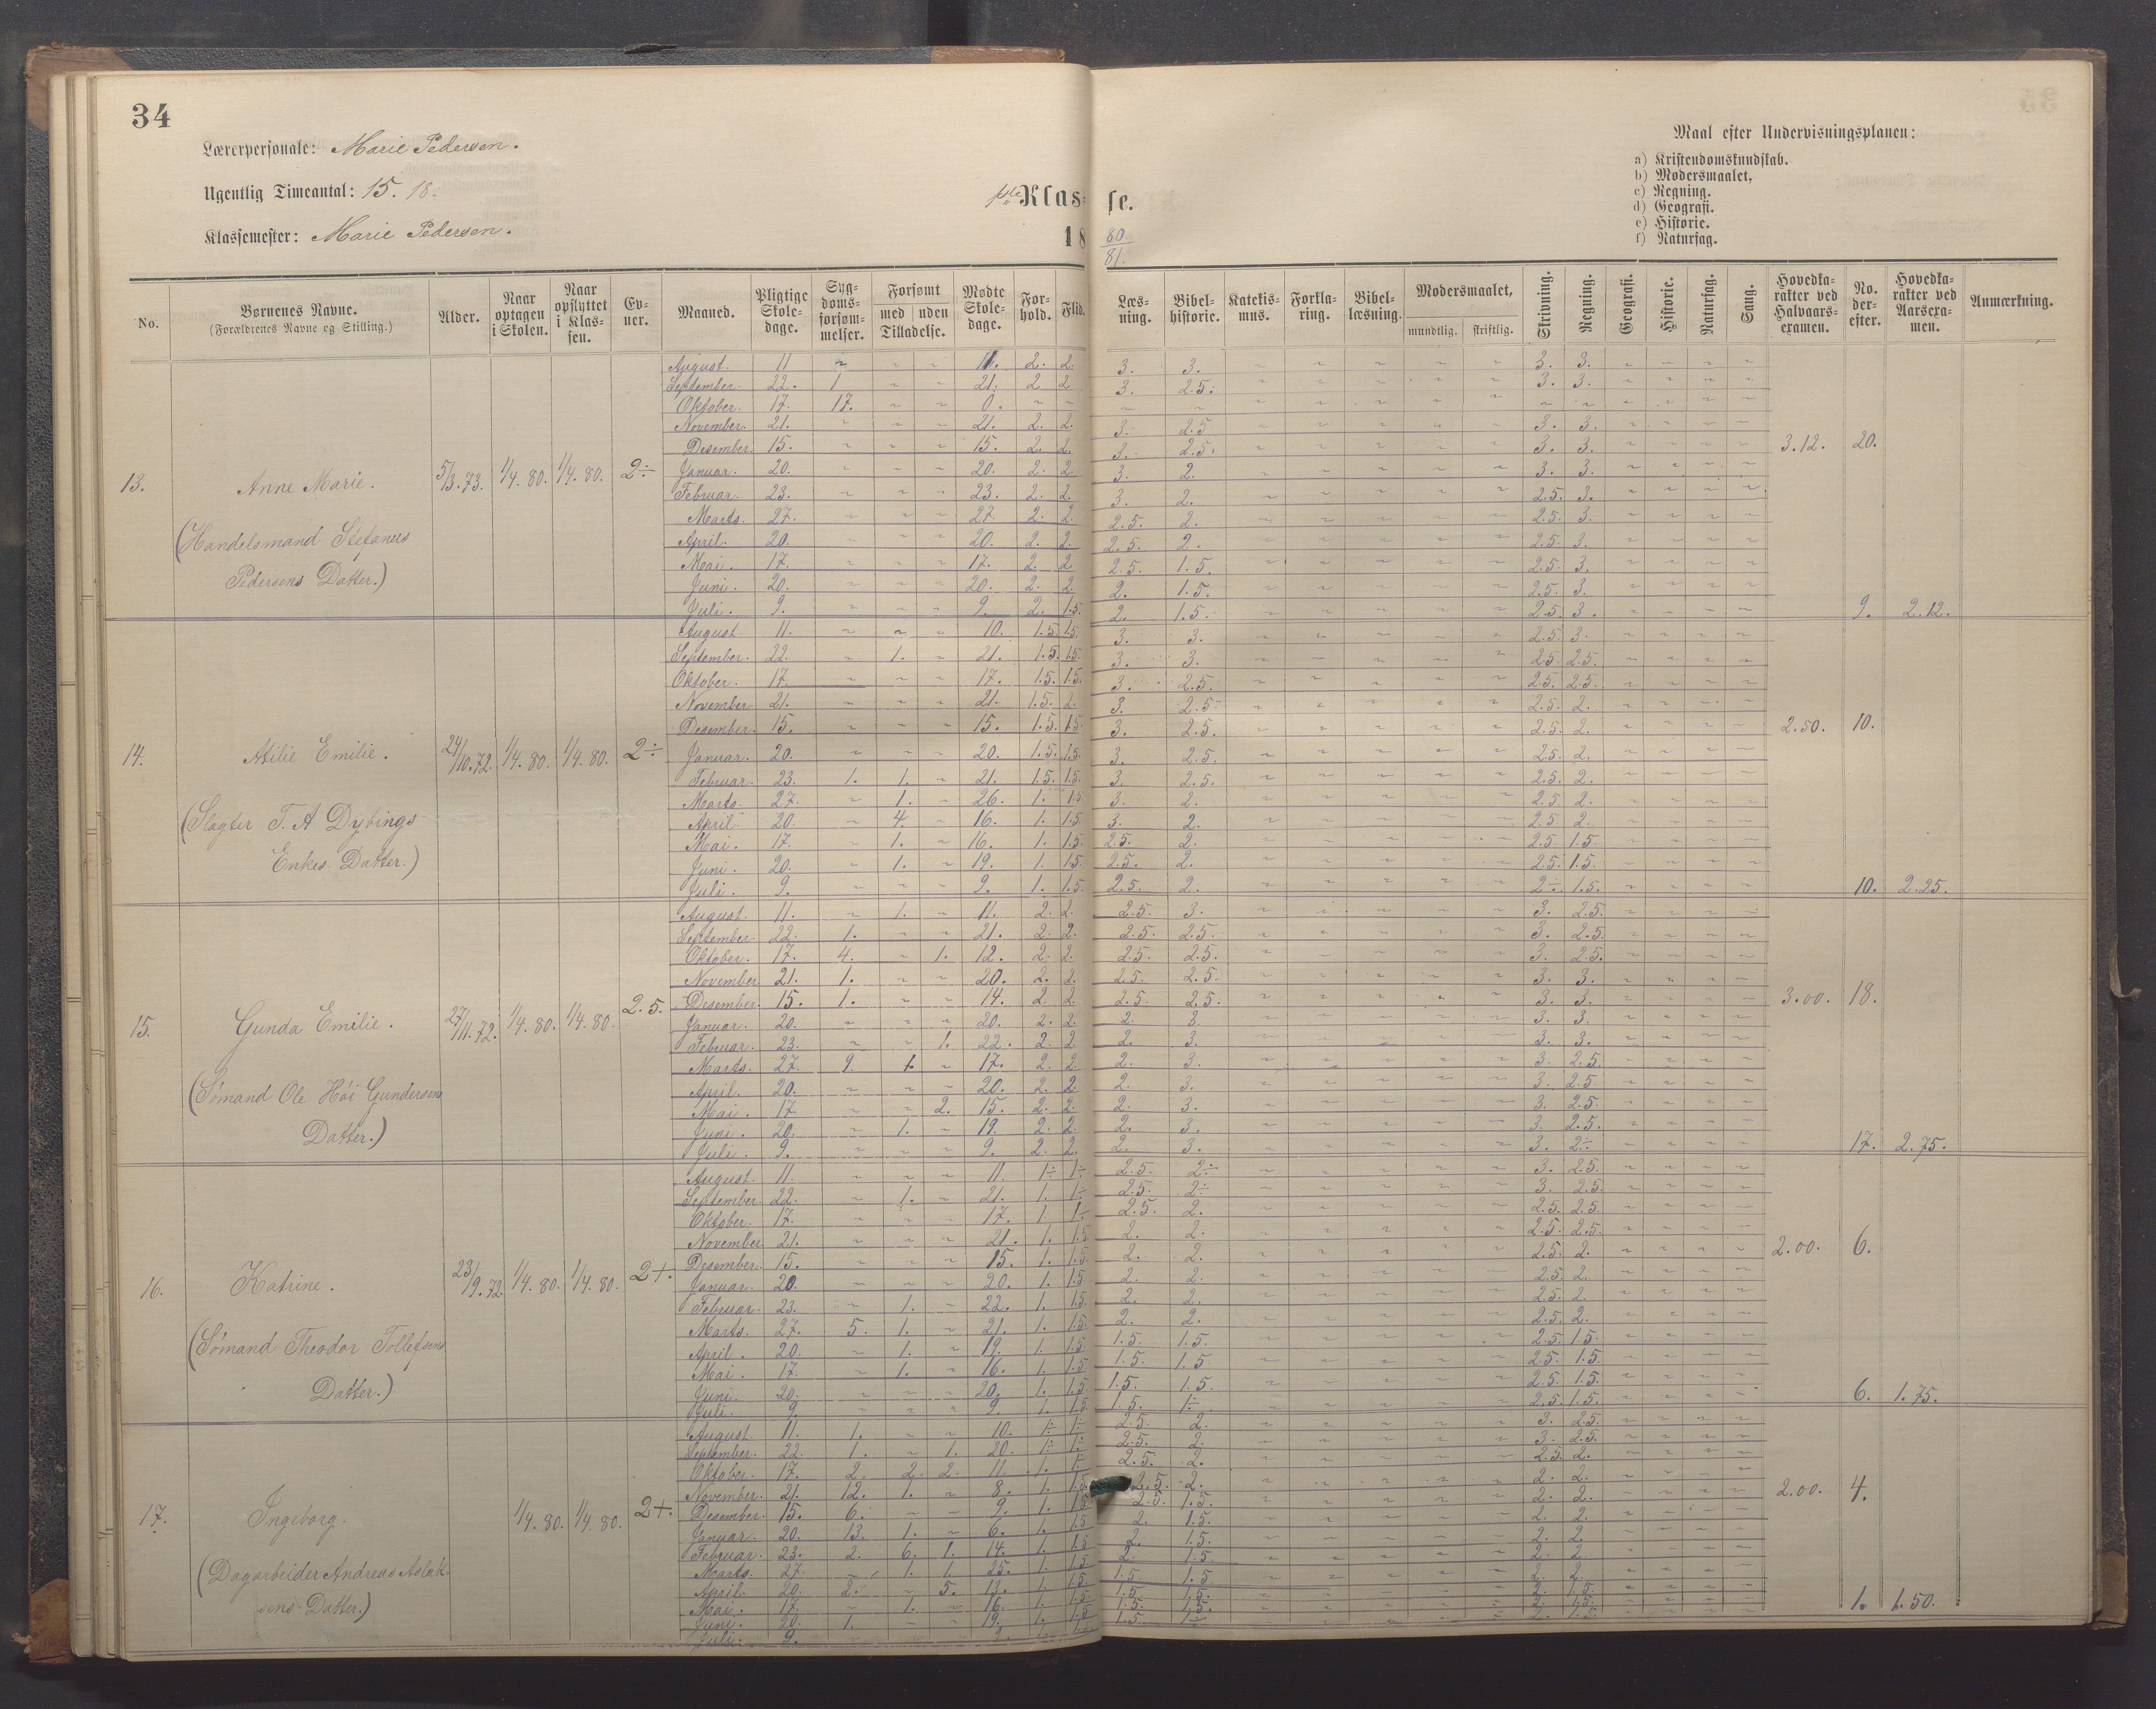 34
Lærerpersonale: Marie Pedersen.
Ugentlig Timeantal: 15. 18.
Klassemester: Marie Pedersen.
1ste Klasse.
18 80/81.
Maal efter Undervisningsplanen:
a) Kristendomskundskab.
b) Modersmaalet.
c) Regning.
d) Geografi.
e) Historie.
f) Naturfag.
No. | Børnenes Navne. (Forældrenes Navne og Stilling.) | Alder. | Naar optagen i Skolen. | Naar opflyttet i Klassen. | Evner. | Maaned. | Pligtige Skoledage. | Sygdomsforsømmelser. | Forsømt med Tilladelse. | Forsømt uden Tilladelse. | Mødte Skoledage. | Forhold. | Flid. | Læsning. | Bibelhistorie. | Katekismus. | Forklaring. | Bibellæsning. | Modersmaalet, mundtlig. | skriftlig. | Skrivning. | Regning. | Geografi. | Historie. | Naturfag. | Sang. | Hovedkarakter ved Halvaarsexamen. | No. derefter. | Hovedkarakter ved Aarsexamen. | Anmærkning.
13. Anne Marie. 5/3.73. 1/4.80. 1/4.80. 2÷
(Handelsmand Stefanus
Pedersens Datter.)
August. 11 ~ ~ ~ 11. 2. 2. 3. 3. ~ ~ ~ ~ ~ 3. 3. ~ ~ ~ ~
September. 22. 1 ~ ~ 21. 2 2 3. 2.5. ~ ~ ~ ~ ~ 3. 3. ~ ~ ~ ~
Oktober. 17. 17. ~ ~ 0. ~ ~ ~ ~ ~ ~ ~ ~ ~ ~ ~ ~ ~ ~ ~
November. 21. ~ ~ ~ 21. 2. 2. 3. 2.5 ~ ~ ~ ~ ~ 3. 3. ~ ~ ~ ~
Desember. 15. ~ ~ ~ 15. 2. 2. 3. 2.5. ~ ~ ~ ~ ~ 3. 3. ~ ~ ~ ~ 3.12. 20.
Januar. 20. ~ ~ ~ 20. 2. 2. 3. 2. ~ ~ ~ ~ ~ 3. 3. ~ ~ ~ ~
Februar. 23. ~ ~ ~ 23. 2. 2. 3. 2. ~ ~ ~ ~ ~ 2.5. 3. ~ ~ ~ ~
Marts. 27. ~ ~ ~ 27. 2. 2. 2.5. 2. ~ ~ ~ ~ ~ 2.5. 3. ~ ~ ~ ~
April. 20. ~ ~ ~ 20. 2. 2. 2.5. 2. ~ ~ ~ ~ ~ 2.5. 3. ~ ~ ~ ~
Mai. 17. ~ ~ ~ 17. 2. 2 2.5. 1.5. ~ ~ ~ ~ ~ 2.5. 3. ~ ~ ~ ~
Juni. 20. ~ ~ ~ 20. 2. 2. 2. 1.5. ~ ~ ~ ~ ~ 2.5. 3. ~ ~ ~ ~
Juli. 9. ~ ~ ~ 9. 2. 1.5. 2. 1.5. ~ ~ ~ ~ ~ 2.5. 3. ~ ~ ~ ~ 9. 2.12.
14. Emilie. 24/10.72. 1/4.80. 1/4.80. 2÷
(Slagter T. A Dybings
Enkes Datter.)
August 11. ~ ~ ~ 10. 1.5. 1.5. 3. 3. ~ ~ ~ ~ ~ 2.5. 3. ~ ~ ~ ~
September. 22. ~ 1. ~ 21. 1.5. 1.5. 3. 3. ~ ~ ~ ~ ~ 2.5. 2.5. ~ ~ ~ ~
Oktober. 17. ~ ~ ~ 17. 1.5. 1.5. 3. 2.5. ~ ~ ~ ~ ~ 2.5. 2.5. ~ ~ ~ ~
November. 21. ~ ~ ~ 21. 1.5. 2. 3. 2.5. ~ ~ ~ ~ ~ 2.5. 2. ~ ~ ~ ~
Desember. 15. ~ ~ ~ 15. 1.5. 1.5. 3. 2.5. ~ ~ ~ ~ ~ 2.5. 2. ~ ~ ~ ~ 2.50. 10.
Januar. 20. ~ ~ ~ 20. 1.5. 1.5. 3. 2.5. ~ ~ ~ ~ ~ 2.5. 2. ~ ~ ~ ~
Februar. 23. 1. 1. ~ 21. 1.5. 1.5. 3. 2.5. ~ ~ ~ ~ ~ 2.5. 2. ~ ~ ~ ~
Marts. 27. ~ 1. ~ 26. 1. 1.5 3. 2. ~ ~ ~ ~ ~ 2.5. 2. ~ ~ ~ ~
April 20. ~ 4. ~ 16. 1. 1.5 3. 2. ~ ~ ~ ~ ~ 2.5 2. ~ ~ ~ ~
Mai. 17. ~ 1. ~ 16. 1. 1.5. 2.5. 2. ~ ~ ~ ~ ~ 2.5. 1.5. ~ ~ ~ ~
Juni. 20. ~ 1. ~ 19. 1. 1.5. 2.5. 2. ~ ~ ~ ~ ~ 2.5. 1.5. ~ ~ ~ ~
Juli. 9. ~ ~ ~ 9. 1. 1.5. 2.5. 2. ~ ~ ~ ~ ~ 2÷. 1.5. ~ ~ ~ ~ 10. 2.25.
15. Gunda Emilie. 27/11.72. 1/4.80. 1/4.80. 2.5.
(Sømand Ole Høi Gundersens
Datter.)
August. 11. ~ 1. ~ 11. 2. 2. 2.5. 3. ~ ~ ~ ~ ~ 3. 2.5. ~ ~ ~ ~
September. 22. 1. ~ ~ 21. 2. 2. 2.5. 2.5. ~ ~ ~ ~ ~ 3. 2.5. ~ ~ ~ ~
Oktober. 17. 4. ~ 1. 12. 2. 2. 2.5. 2.5. ~ ~ ~ ~ ~ 3. 2.5. ~ ~ ~ ~
November 21. 1. ~ ~ 20. 2. 2. 2.5. 2.5. ~ ~ ~ ~ ~ 3. 3. ~ ~ ~ ~
Desember. 15. 1. ~ ~ 14. 2. 2. 2.5. 2.5. ~ ~ ~ ~ ~ 3. 3. ~ ~ ~ ~ 3.00. 18.
Januar. 20. ~ ~ ~ 20. 2. 2. 2. 3. ~ ~ ~ ~ ~ 3. 3. ~ ~ ~ ~
Februar. 23. ~ ~ 1. 22. 2. 2. 2. 3. ~ ~ ~ ~ ~ 3. 3. ~ ~ ~ ~
Marts. 27. 9. 1. ~ 17. 2. 2 2. 3. ~ ~ ~ ~ ~ 3. 2.5. ~ ~ ~ ~
April. 20. ~ ~ ~ 20. 2. 2 2. 3. ~ ~ ~ ~ ~ 3. 2.5. ~ ~ ~ ~
Mai. 17. ~ ~ 2. 15. 2. 2. 2. 3. ~ ~ ~ ~ ~ 3. 2.5. ~ ~ ~ ~
Juni. 20. ~ 1. ~ 19. 2. 2. 2. 3. ~ ~ ~ ~ ~ 3. 2.5. ~ ~ ~ ~
Juli. 9. ~ ~ ~ 9. 2. 2. 2. 3. ~ ~ ~ ~ ~ 3. 2÷ ~ ~ ~ ~ 17. 2.75.
16. Katrine. 23/9.72. 1/4.80. 1/4.80. 2+.
(Sømand Theodor Tollefsens
Datter.)
August. 11. ~ ~ ~ 11. 1÷ 1÷ 2.5. 2÷ ~ ~ ~ ~ ~ 3. 2.5. ~ ~ ~ ~
September. 22. ~ 1. ~ 21. 1. 1÷ 2.5. 2÷ ~ ~ ~ ~ ~ 3. 2.5. ~ ~ ~ ~
Oktober. 17. ~ ~ ~ 17. 1. 1÷ 2.5. 2. ~ ~ ~ ~ ~ 2.5. 2.5. ~ ~ ~ ~
November. 21. ~ ~ ~ 21. 1. 1.5 2. 2. ~ ~ ~ ~ ~ 2.5. 2.5. ~ ~ ~ ~
Desember. 15. ~ ~ ~ 15. 1. 1.5. 2. 2. ~ ~ ~ ~ ~ 2.5. 2. ~ ~ ~ ~ 2.00. 6.
Januar. 20. ~ ~ ~ 20. 1. 1.5 2. 2. ~ ~ ~ ~ ~ 2.5. 2. ~ ~ ~ ~
Februar. 23. ~ 1. ~ 22. 1. 1.5. 2. 2. ~ ~ ~ ~ ~ 2.5. 2. ~ ~ ~ ~
Marts. 27. 5. 1. ~ 21. 1. 1.5. 2. 2. ~ ~ ~ ~ ~ 2.5. 2. ~ ~ ~ ~
April. 20. ~ 1. ~ 19. 1. 1.5 1.5. 1.5. ~ ~ ~ ~ ~ 2.5. 1.5. ~ ~ ~ ~
Mai. 17. ~ 1. ~ 16. 1. 1.5 1.5. 1.5 ~ ~ ~ ~ ~ 2.5. 1.5. ~ ~ ~ ~
Juni. 20. ~ ~ ~ 20. 1. 1.5 1.5. 1.5. ~ ~ ~ ~ ~ 2.5. 1.5. ~ ~ ~ ~
Juli. 9. ~ ~ ~ 9. 1. 1.5. 1.5. 1÷ ~ ~ ~ ~ ~ 2.5. 1.5. ~ ~ ~ ~ 6. 1.75.
17. Ingeborg. 1/4.80. 1/4.80. 2+.
(Dagarbeider Andreas Aslak-
sens Datter.)
August. 11. 1. ~ ~ 10. 1÷ 1÷ 2.5. 2. ~ ~ ~ ~ ~ 3. 2.5. ~ ~ ~ ~
September. 22. 1. ~ 1. 20. 1÷ 1÷ 2.5. 2. ~ ~ ~ ~ ~ 3. 2.5. ~ ~ ~ ~
Oktober. 17. 2. 2. 2. 11. 1. 1÷ 2.5. 2. ~ ~ ~ ~ ~ 2.5. 2. ~ ~ ~ ~
November. 21. 12. 1. ~ 8. 1. 1.5. 2.5. 2. ~ ~ ~ ~ ~ 2. 2. ~ ~ ~ ~
Desember. 15. 6. ~ ~ 9. 1. 1.5 2.5. 1.5. ~ ~ ~ ~ ~ 2. 2. ~ ~ ~ ~ 2.00. 4.
Januar. 20. 13. 1. ~ 6. 1. 1.5 2. 1.5. ~ ~ ~ ~ ~ 2. 2. ~ ~ ~ ~
Februar. 23. 2. 6. 1. 14. 1. 1.5 2. 1.5. ~ ~ ~ ~ ~ 2. 2. ~ ~ ~ ~
Marts. 27. ~ 1. 1. 25. 1. 1.5 2. 1.5 ~ ~ ~ ~ ~ 2. 2. ~ ~ ~ ~
April. 20. 2. ~ 5. 13. 1. 1.5 1.5 1.5 ~ ~ ~ ~ ~ 2. 2. ~ ~ ~ ~
Mai. 17. ~ 1. ~ 16. 1. 1.5. 1.5. 1.5. ~ ~ ~ ~ ~ 2. 1.5. ~ ~ ~ ~
Juni. 20. 1. ~ ~ 19. 1. 1.5 1.5. 1.5. ~ ~ ~ ~ ~ 2. 1.5. ~ ~ ~ ~ 1. 1.50.
Juli. 9.